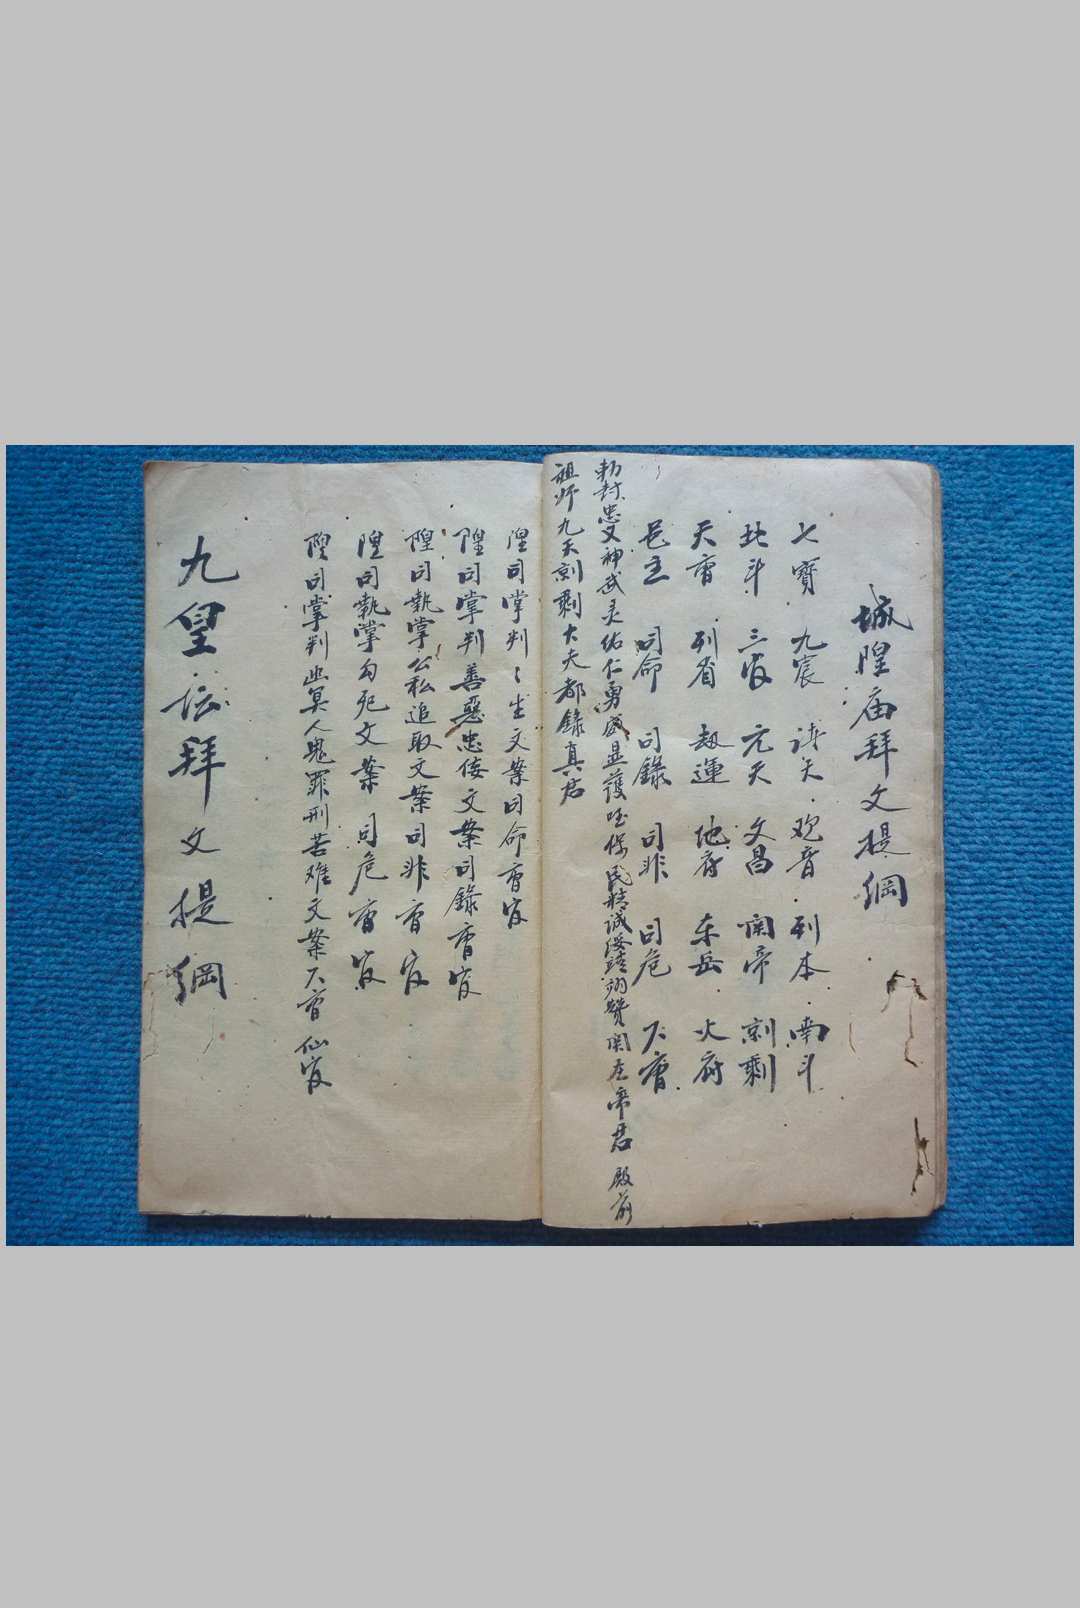 城隍庙拜文提綱
七寳 九宸 诸天 观音 列本 南斗
北斗 三官 元天 文昌 関帝 刻剩
天曹 列省 劫運 地府 东岳 火府
邑主 司命 司錄 司非 司危 下曹
勅封忠义神武灵佑仁勇威显護国保民精诚绥靖翊赞関圣帝君 殿前
祖师九天刻剩大夫都錄真君
隍司掌判 生文案司命曹官
隍司掌判善惡忠佞文案司錄曹官
隍司執掌公私追取文案司非曹官
隍司執掌勾死文案司危曹官
隍司掌判幽冥人鬼罪刑苦难文案下曹仙官
九皇坛拜文提綱